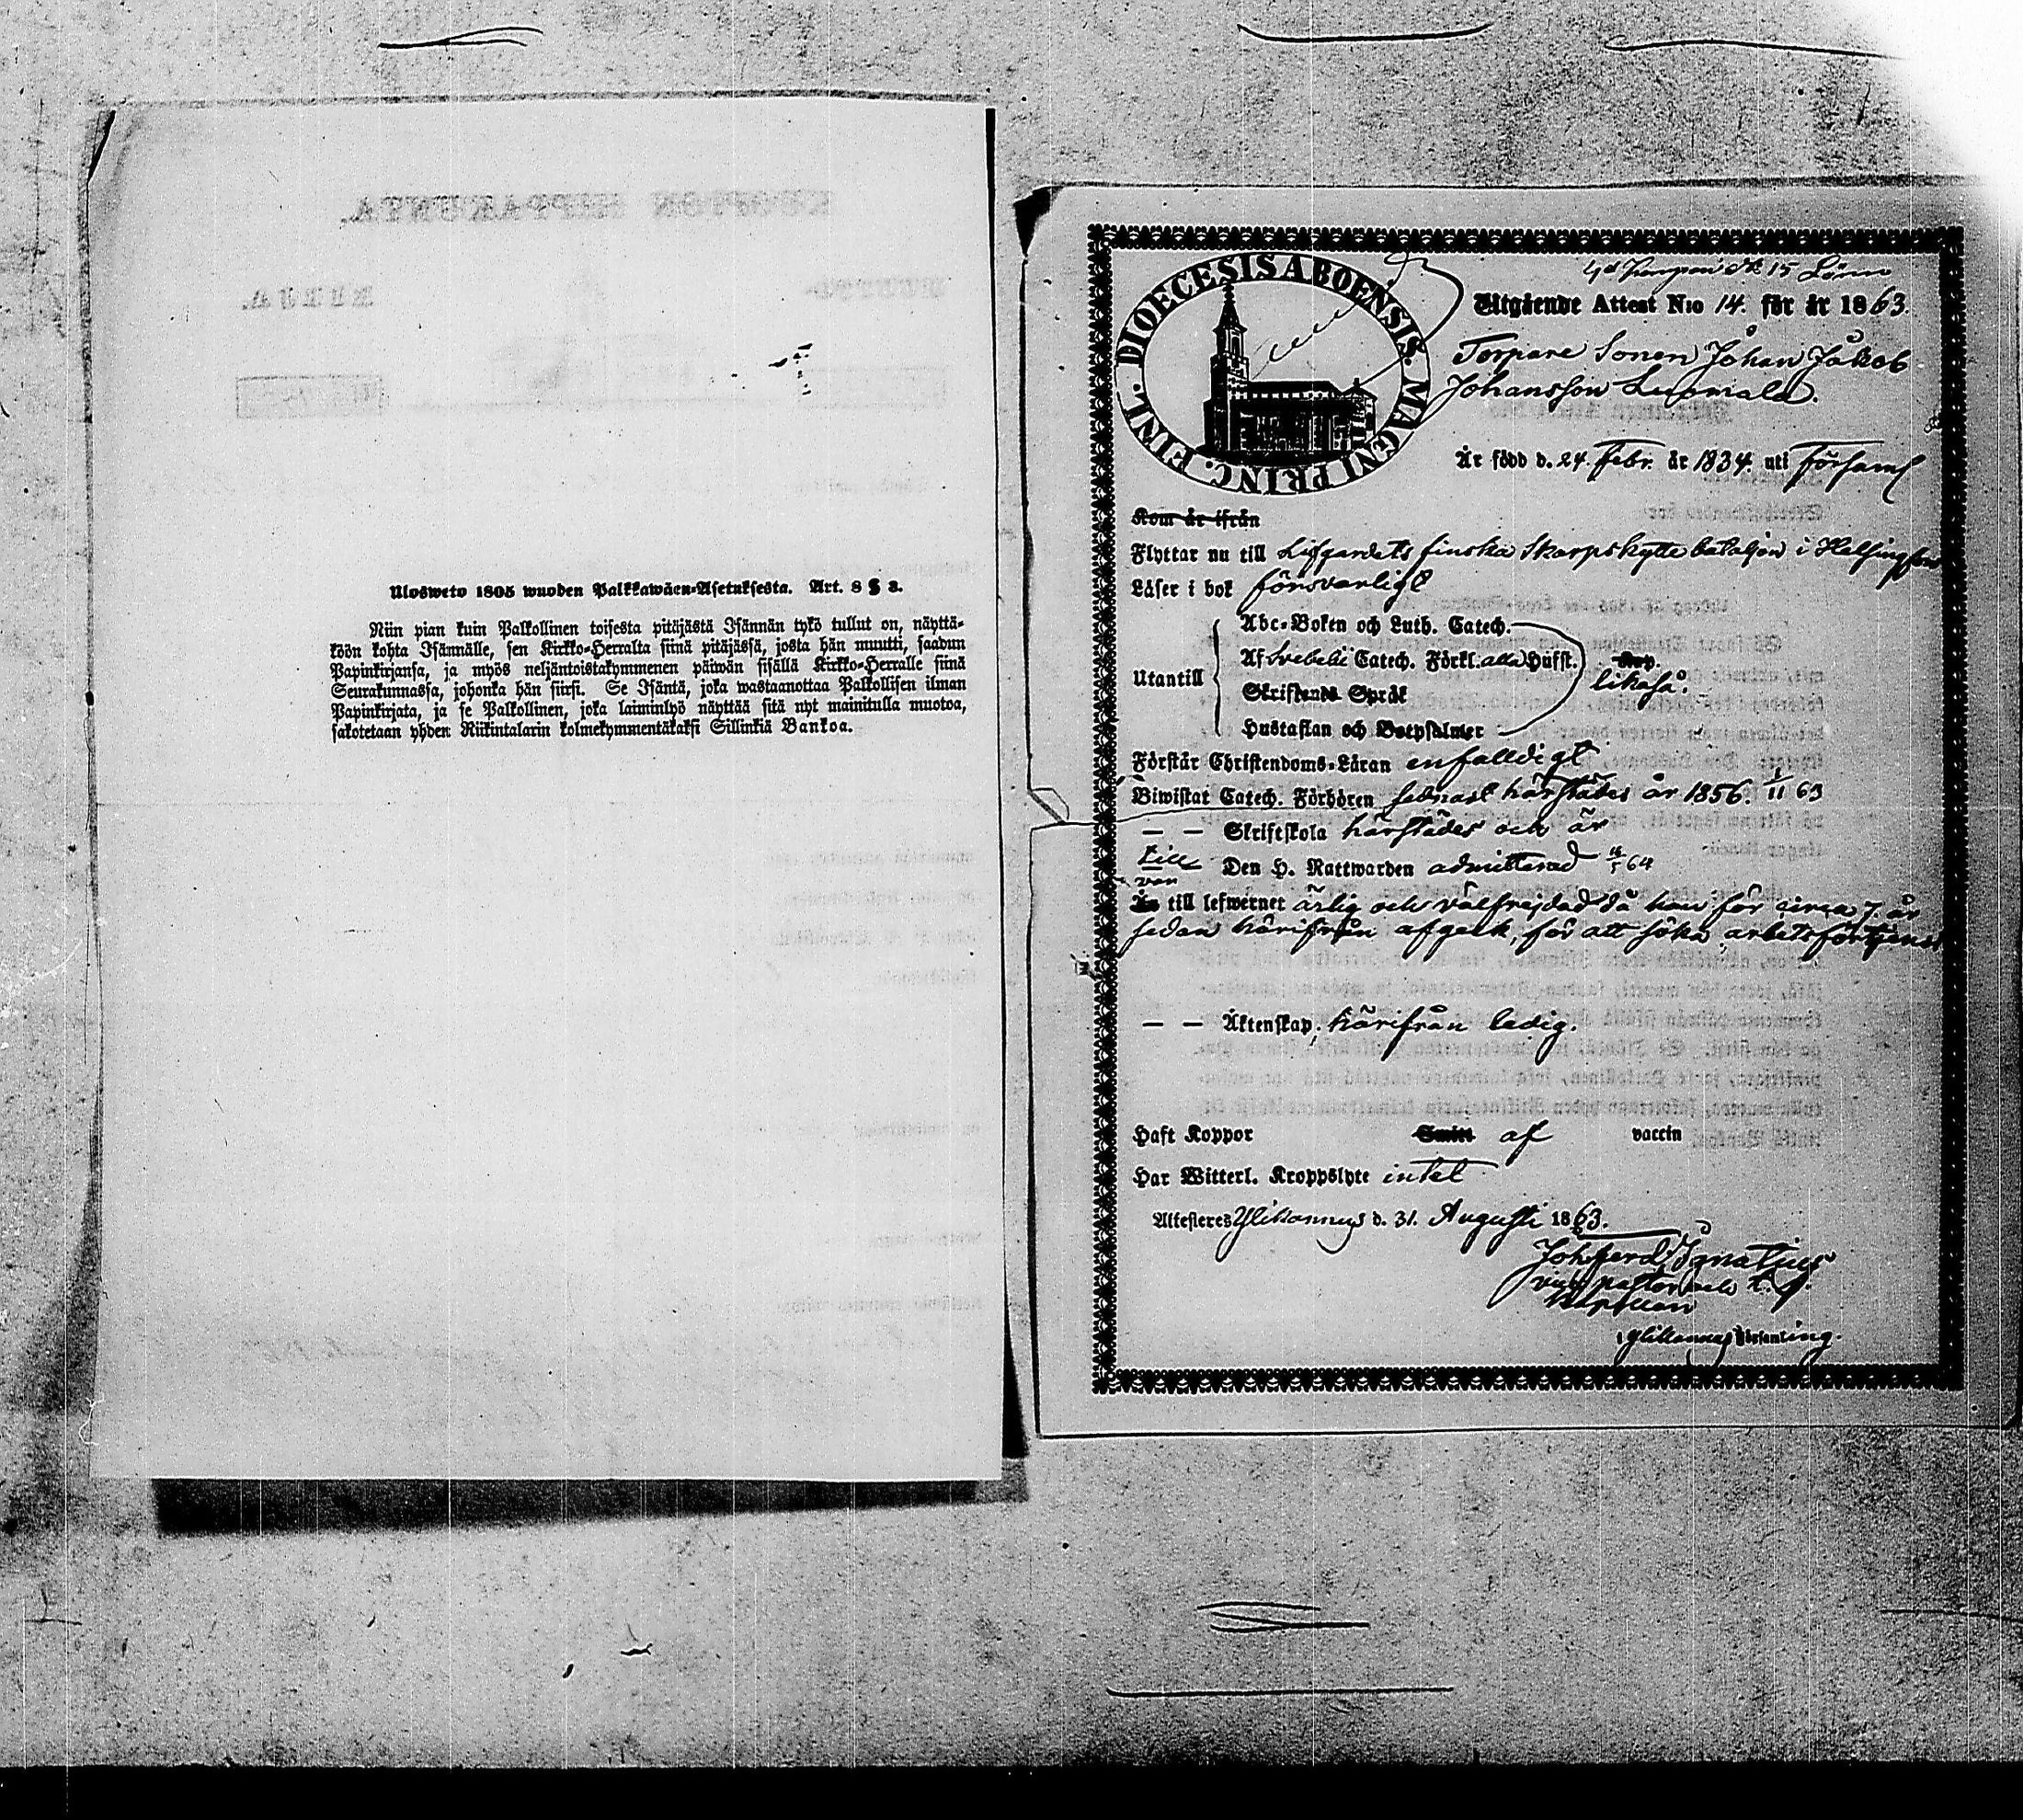 Ulosweto 1805 wuoden Palkkawäen-Asetuksesta. Art. 8 § 3.
Niin pian kuin Palkollinen toisesta pitäjästä Isännän tykö tullut on, näyttä-
köön kohta Isännälle, sen Kirkko-Herralta siinä pitäjässä, josta hän muutti, saadun
Papinkirjansa, ja myös neljäntoistakymmenen päiwän sisällä Kirkko-Herralle siinä
Seurakunnassa, johonka hän siirsi. Se Isäntä, joka wastaanottaa Palkollisen ilman
Papinkirjata, ja se Palkollinen, joka laiminlyö näyttää sitä nyt mainitulla muotoa,
sakotetaan yhden Riikintalarin kolmekymmentäkaksi Sillinkiä Bankoa.
DIOECESIS ABOENSIS. MAGNI PRINC. FINL.
Utgående Attest N:o 14. för år 1863.
Torpare Sonen Johan Jakob
Johansson
Är född d. 24. Febr. år 1834. uti Församl
Kom år ifrån
Flyttar nu till Lifgardets finska Skarpskytte bataljon i Helsingfors
Läser i bok försvarligt
Abc-Boken och Luth. Catech.
Utantill Af Svebelii Catech. Förkl. alla Hufst. likaså.
Skriftenes Språk
Hustaflan och Botpsalmer
Förstår Christendoms-Läran enfalldigt
Biwistat Catech. Förhören sednast härstädes år 1856. 1/11 63
— — Skriftskola härstädes och är
till Den H. Nattwarden admitterad 64
var
Är till lefwernet ärlig och välfrejdad då han för circa 7 år
sedan härifrån afgick, för att söka arbetsförtjenst
— — Äktenskap, härifrån ledig.
Haft Koppor Smitt af vaccin
Har Witterl. Kroppslyte intet
Attesteres Ylikannus d. 31. Augusti 1863.
Joh Ferd Ignatius
vice pastor och t. f.
Kapellan
i Ylikannus församling.